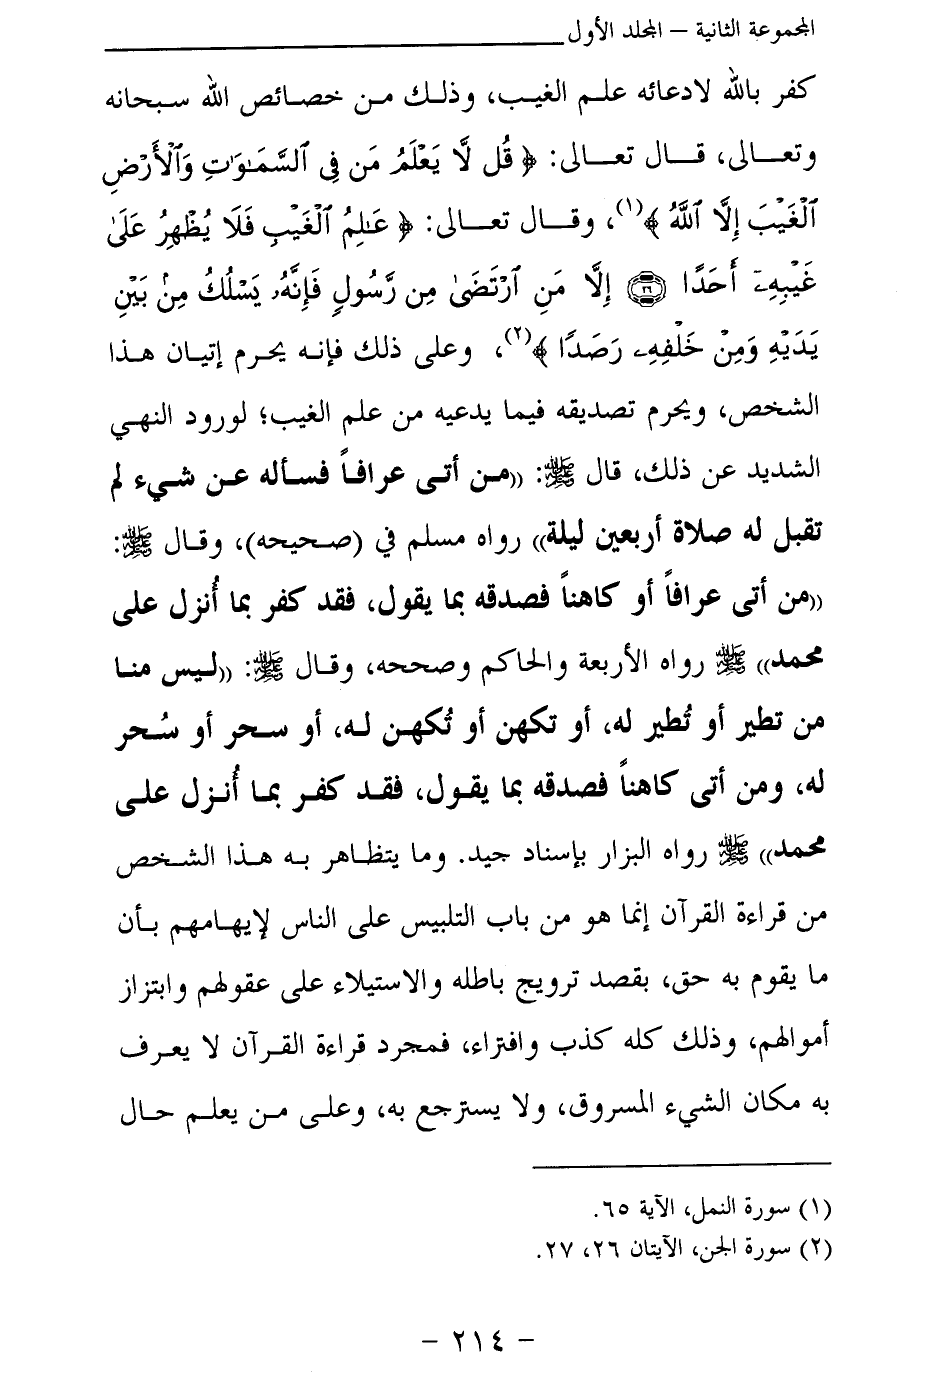 المجموعة الثانية – المجلد الأول
كفر بالله لادعائه علم الغيب، وذلك من خصائص الله سبحانه
وتعالى، قال تعالى: ﴿ قُل لَّا يَعْلَمُ مَن فِي ٱلسَّمَـٰوَٰتِ وَٱلْأَرْضِ
ٱلْغَيْبَ إِلَّا ٱللَّهُ ﴾(١)، وقال تعالى: ﴿ عَـٰلِمُ ٱلْغَيْبِ فَلَا يُظْهِرُ عَلَىٰ
غَيْبِهِۦٓ أَحَدًا ۝٢٦ إِلَّا مَنِ ٱرْتَضَىٰ مِن رَّسُولٍ فَإِنَّهُۥ يَسْلُكُ مِنۢ بَيْنِ
يَدَيْهِ وَمِنْ خَلْفِهِۦ رَصَدًا ﴾(٢)، وعلى ذلك فإنه يحرم إتيان هذا
الشخص، ويحرم تصديقه فيما يدعيه من علم الغيب؛ لورود النهي
الشديد عن ذلك، قال ﷺ: ((من أتى عرافاً فسأله عن شيء لم
تقبل له صلاة أربعين ليلة)) رواه مسلم في (صحيحه)، وقال ﷺ:
((من أتى عرافاً أو كاهناً فصدقه بما يقول، فقد كفر بما أُنزل على
محمد)) ﷺ رواه الأربعة والحاكم وصححه، وقال ﷺ: ((ليس منا
من تطير أو تُطير له، أو تكهن أو تُكهن له، أو سحر أو سُحر
له، ومن أتى كاهناً فصدقه بما يقول، فقد كفر بما أُنزل على
محمد)) ﷺ رواه البزار بإسناد جيد. وما يتظاهر به هذا الشخص
من قراءة القرآن إنما هو من باب التلبيس على الناس لإيهامهم بأن
ما يقوم به حق، بقصد ترويج باطله والاستيلاء على عقولهم وابتزاز
أموالهم، وذلك كله كذب وافتراء، فمجرد قراءة القرآن لا يعرف
به مكان الشيء المسروق، ولا يسترجع به، وعلى من يعلم حال
(١) سورة النمل، الآية ٦٥.
(٢) سورة الجن، الآيتان ٢٦، ٢٧.
– ٢١٤ –